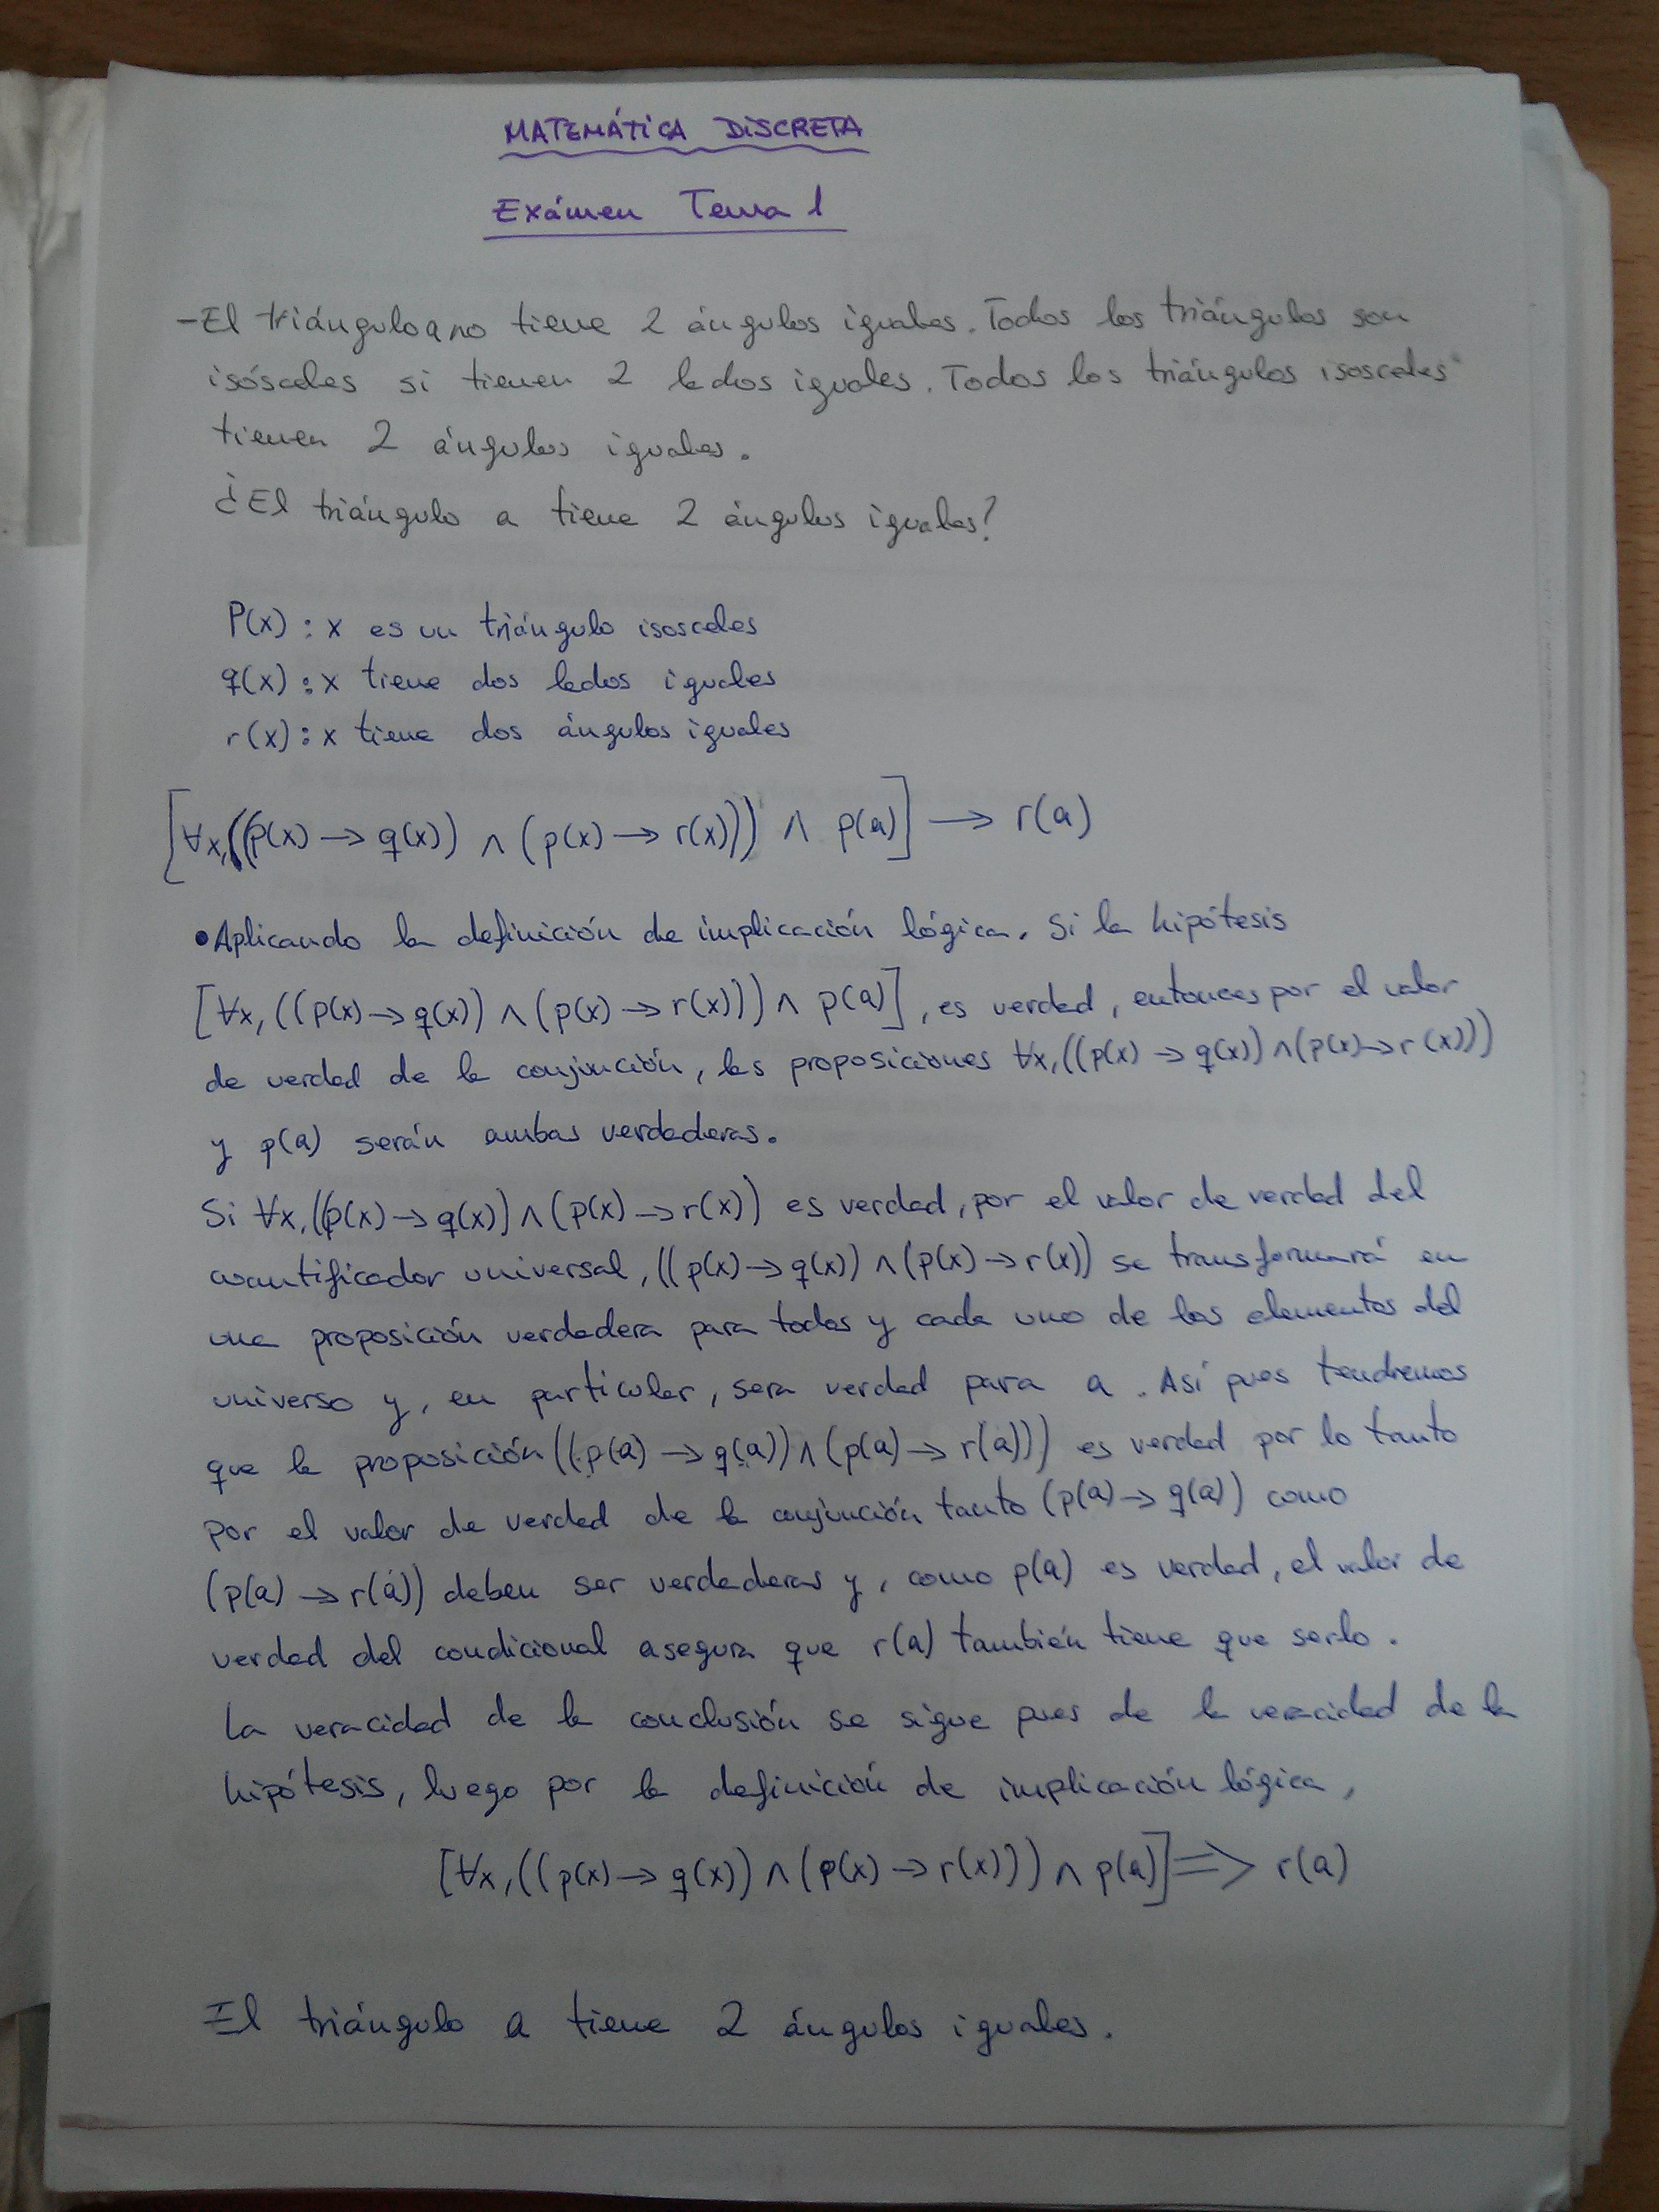 MATEMÁTICA DISCRETA
Exámen Tema 1
-El triángulo a no tiene 2 ángulos iguales. Todos los triángulos son
isósceles si tienen 2 lados iguales. Todos los triángulos isosceles
tienen 2 ángulos iguales.
¿El triángulo a tiene 2 ángulos iguales?
P(x) : x es un triángulo isosceles
q(x) : x tiene dos lados iguales
r(x) : x tiene dos ángulos iguales
[∀x,((p(x) → q(x)) ∧ (p(x) → r(x))) ∧ p(a)] → r(a)
• Aplicando la definición de implicación lógica. Si la hipótesis
[∀x, ((p(x) → q(x)) ∧ (p(x) → r(x))) ∧ p(a)], es verdad, entonces por el valor
de verdad de la conjunción, las proposiciones ∀x,((p(x) → q(x)) ∧ (p(x) → r(x)))
y p(a) serán ambas verdaderas.
Si ∀x,((p(x) → q(x)) ∧ (p(x) → r(x)) es verdad, por el valor de verdad del
cuantificador universal, ((p(x) → q(x)) ∧ (p(x) → r(x)) se transformará en
una proposición verdadera para todos y cada uno de los elementos del
universo y, en particular, sera verdad para a. Así pues tendremos
que la proposición ((p(a) → q(a)) ∧ (p(a) → r(a))) es verdad por lo tanto
por el valor de verdad de la conjunción tanto (p(a) → q(a)) como
(p(a) → r(a)) deben ser verdaderas y, como p(a) es verdad, el valor de
verdad del condicional asegura que r(a) también tiene que serlo.
La veracidad de la conclusión se sigue pues de la veracidad de la
hipótesis, luego por la definición de implicación lógica,
[∀x,((p(x) → q(x)) ∧ (p(x) → r(x))) ∧ p(a)] ⇒ r(a)
El triángulo a tiene 2 ángulos iguales.